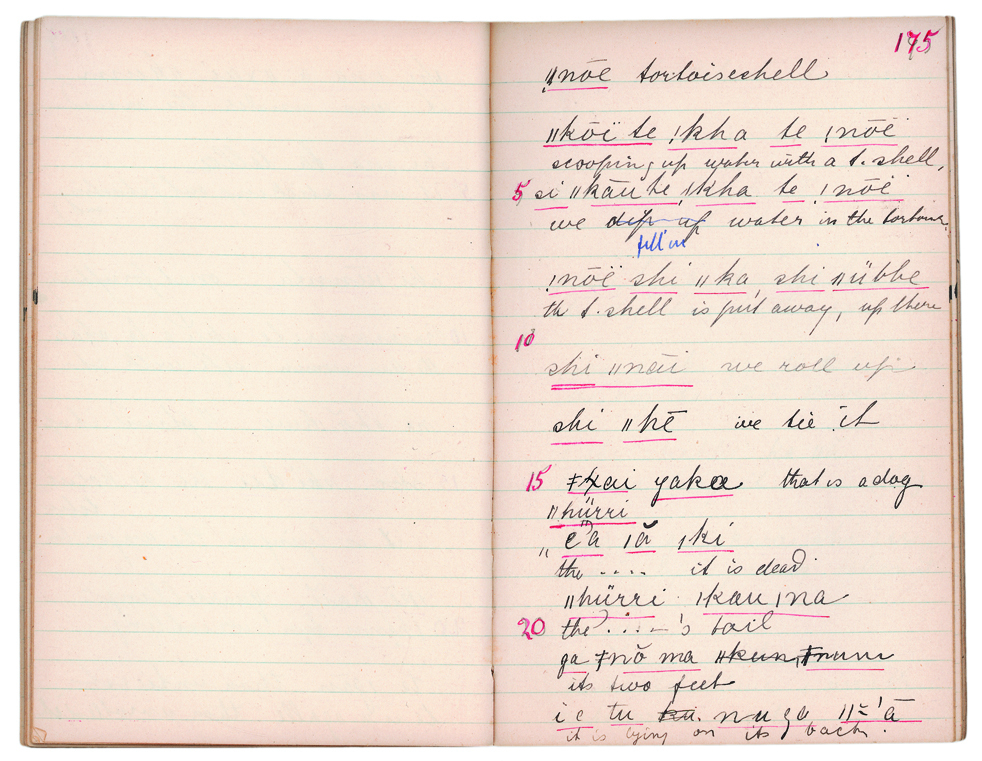 175
ǃnōë tortoiseshell
ǁkōï te ǃkha te ǃnōë
scooping up water with a t. shell,
5 si ǁkāu te ǃkha te ǃnōë
we dip up water in the tortoise
fill in
ǃnōë shi ǁka, shi ǁübbe
th t. shell is put away, up there
10
shi ǁnāi we roll up
shi ǁkē we tie it
15 ǂxai yaka that is a dog
ǁhürri
ǁ ĕa ǀā ǀki
the .... it is dead
ǁhürri ǀkau ǀna
20 the ....'s tail
ga ǂnŏ ma ǁkun ǂnum
its two feet
i e tu ku. nu ga ǁ ā
it is lying on its back.